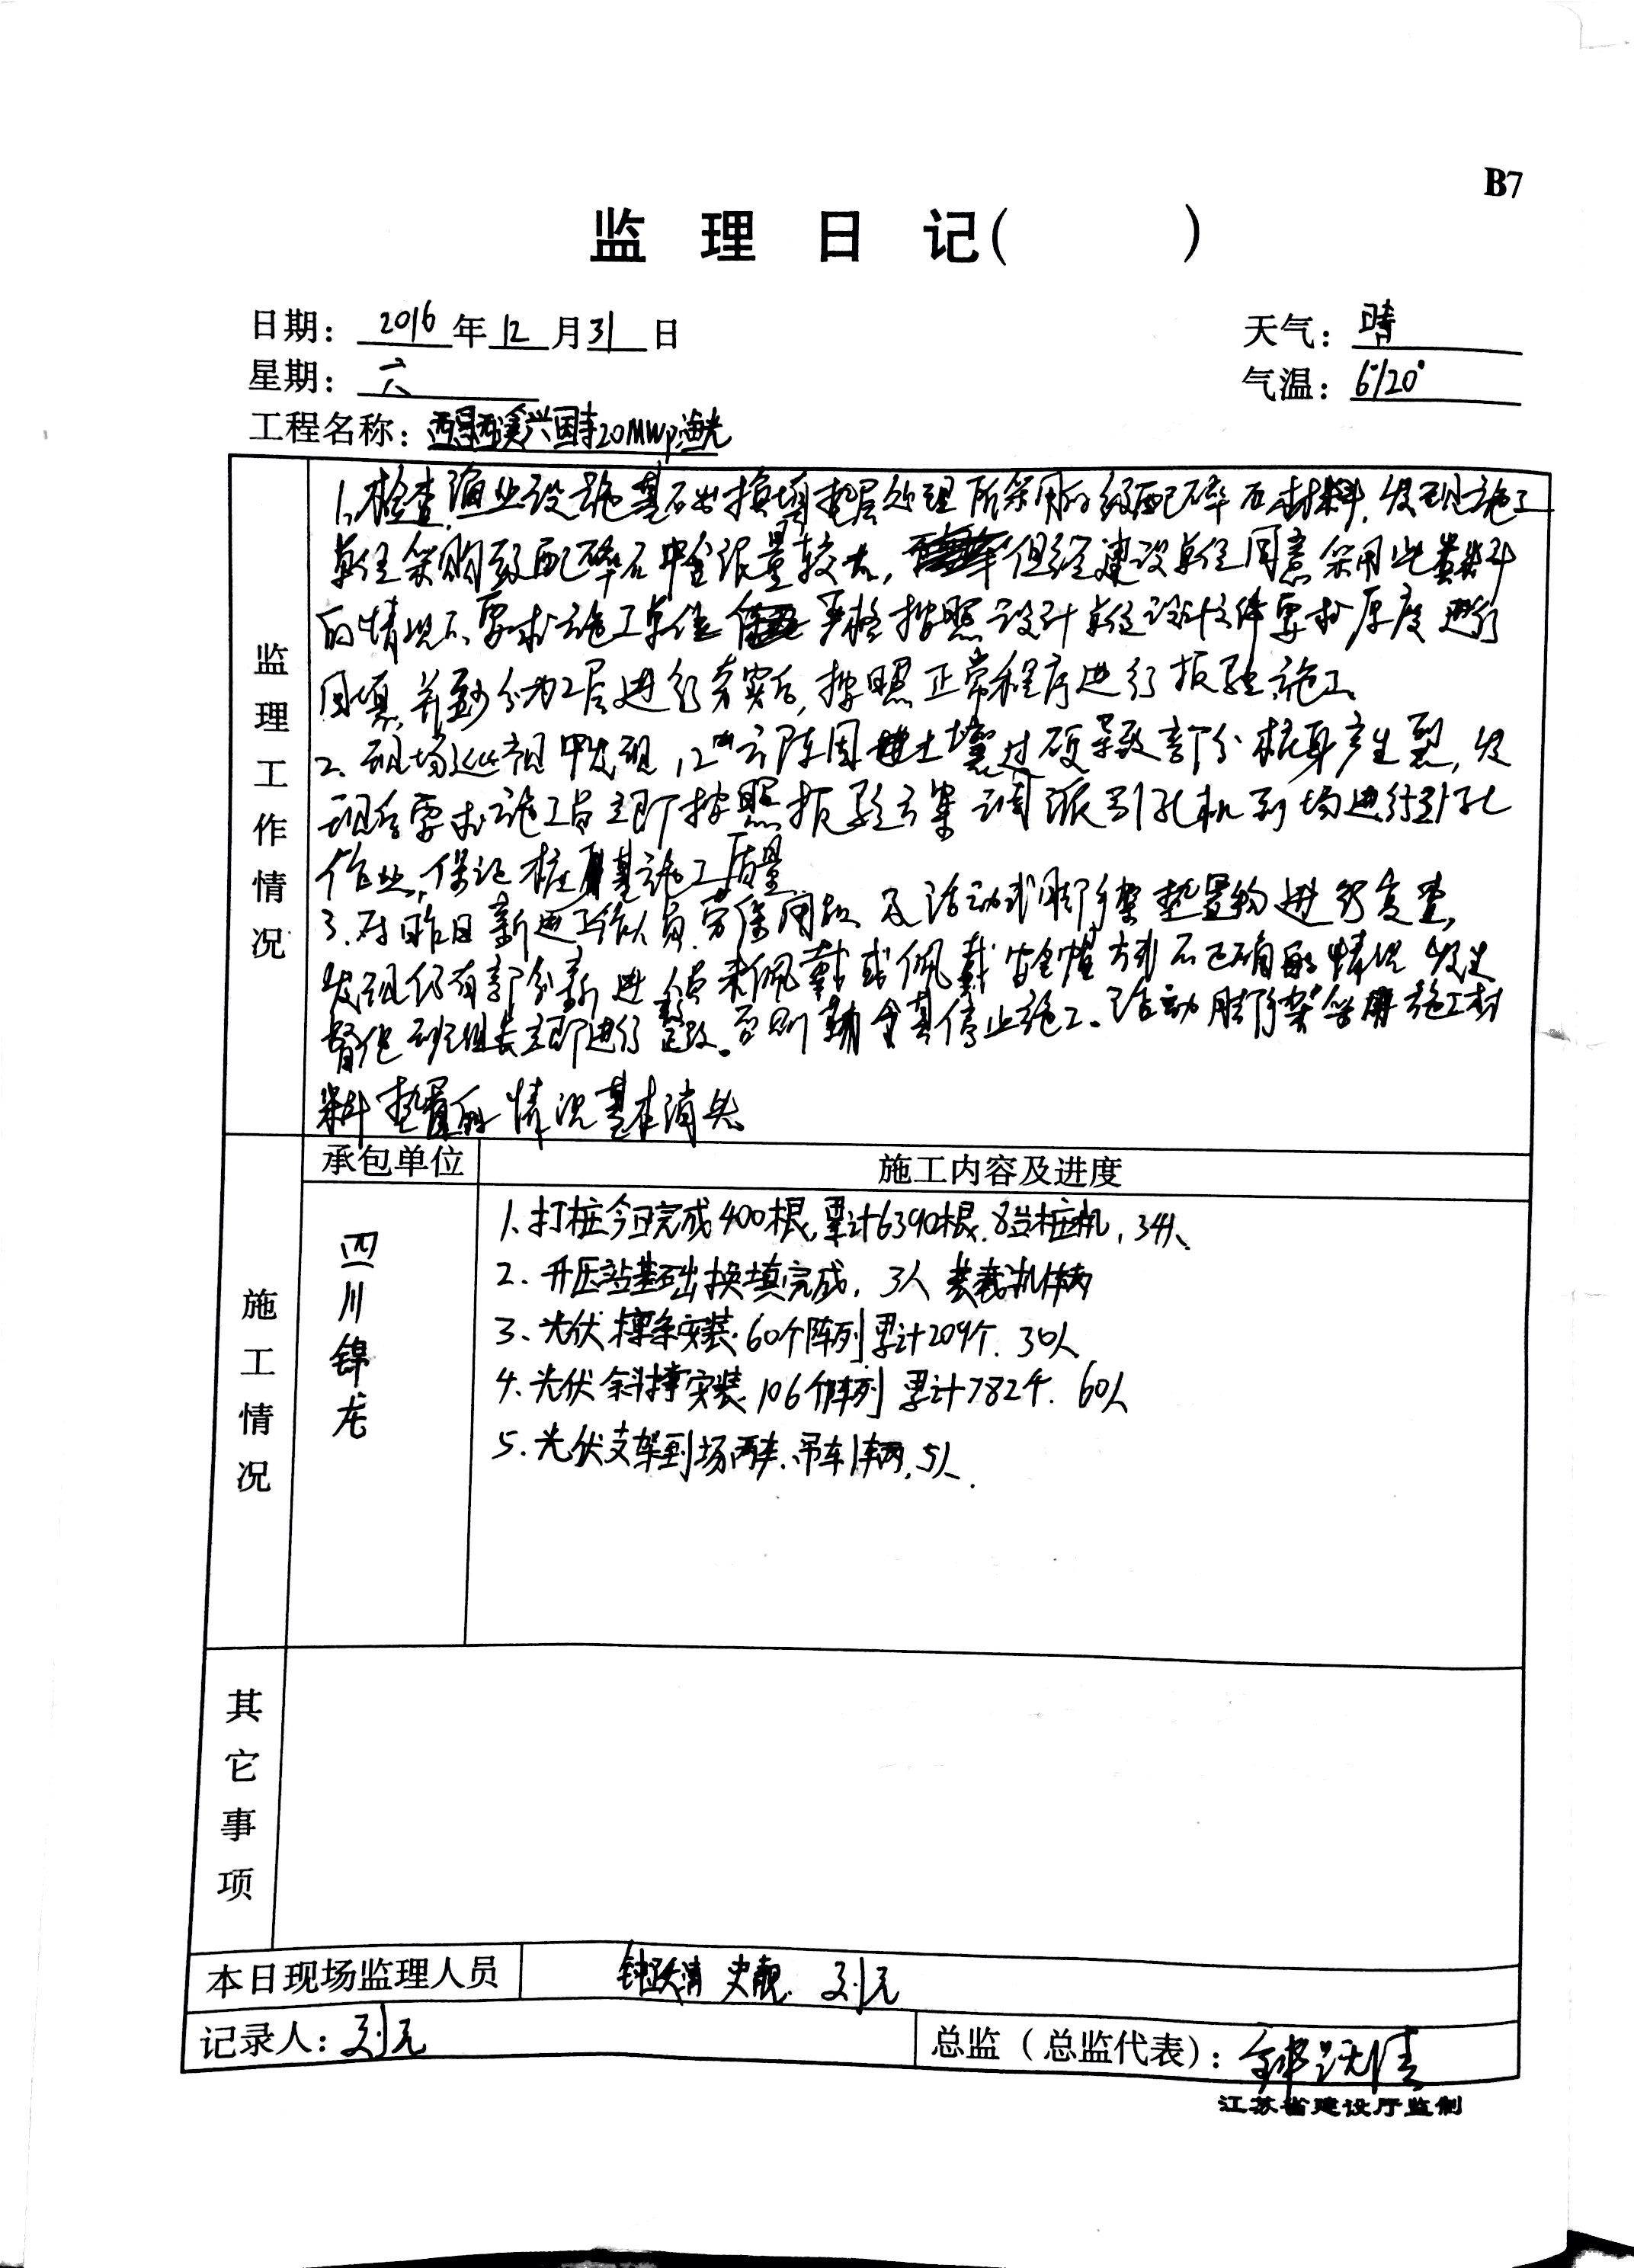 B7
监 理 日 记( )
日期: 2016 年 12 月 31 日
天气: 晴
星期: 六
气温: 6°/20°
工程名称: 西昌西溪兴国寺20MWp渔光
监理工作情况
1、检查渔业设施基础换填垫层处理所采用的级配碎石材料,发现施工
单位采购级配碎石中含泥量较大,但经建设单位同意采用此类料
的情况下,要求施工单位严格按照设计单位设计文件要求厚度进行
回填,并至少分为2层进行夯实后,按照正常程序进行报验施工。
2、现场巡视中发现,12#方阵因土壤过硬导致部分桩身产生裂,发
现后要求施工员立即按照报验方案调派引孔机到场进行引孔
作业,保证桩基施工质量
3、对昨日新进工作人员劳保用品及活动式脚手架垫置物进行复查,
发现仍有部分新进人员未佩戴或佩戴安全帽方式不正确的情况,
督促班组长立即进行整改。否则勒令其停止施工。活动脚手架采用施工材
料垫置的情况基本消失
承包单位 施工内容及进度
施工情况
四川锦龙
1、打桩今日完成400根,累计6390根.8台桩机,34人、
2、升压站基础换填完成,3人 装载机1辆
3、光伏檩条安装.60个阵列累计209个.30人
4、光伏斜撑安装.106个阵列 累计782个.60人
5、光伏支架到场两车、吊车1辆,5人.
其它事项
本日现场监理人员 钟跃清 史靓 刘元
记录人: 刘元
总监(总监代表): 钟跃清
江苏省建设厅监制